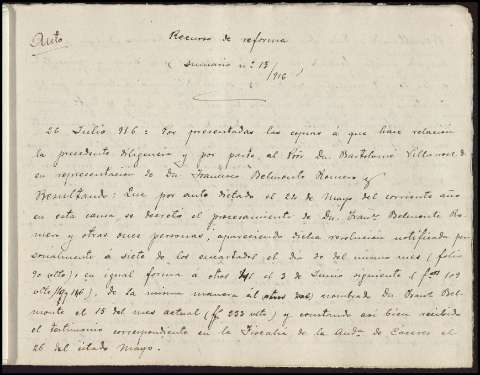 Auto
Recurso de reforma
(sumario n.º 13/916)
26 Julio 916: Por presentadas las copias á que hace relación
la precedente diligencia y por parte al Pror Dn. Bartolomé Villanueva
en representación de Dn. Francisco Belmonte Romero y
Resultando: Que por auto dictado el 24 de Mayo del corriente año
en esta causa, se decretó el procesamiento de Dn. Franco Belmonte Ro-
mero y otras once personas, apareciendo dicha resolución notificada per
sonalmente á siete de los encartados el dia 30 del mismo mes (folio
90 vlto); en igual forma á otros el 3 de Junio siguiente (fos 109
vlto y 116), de la misma manera al nombrado Dn. Franco Bel-
monte el 15 del mes actual (fo 233 vlto) y constando asi bien recibido
el testimonio correspondiente en la Fiscalia de la Auda de Cáceres el
26 del citado Mayo.